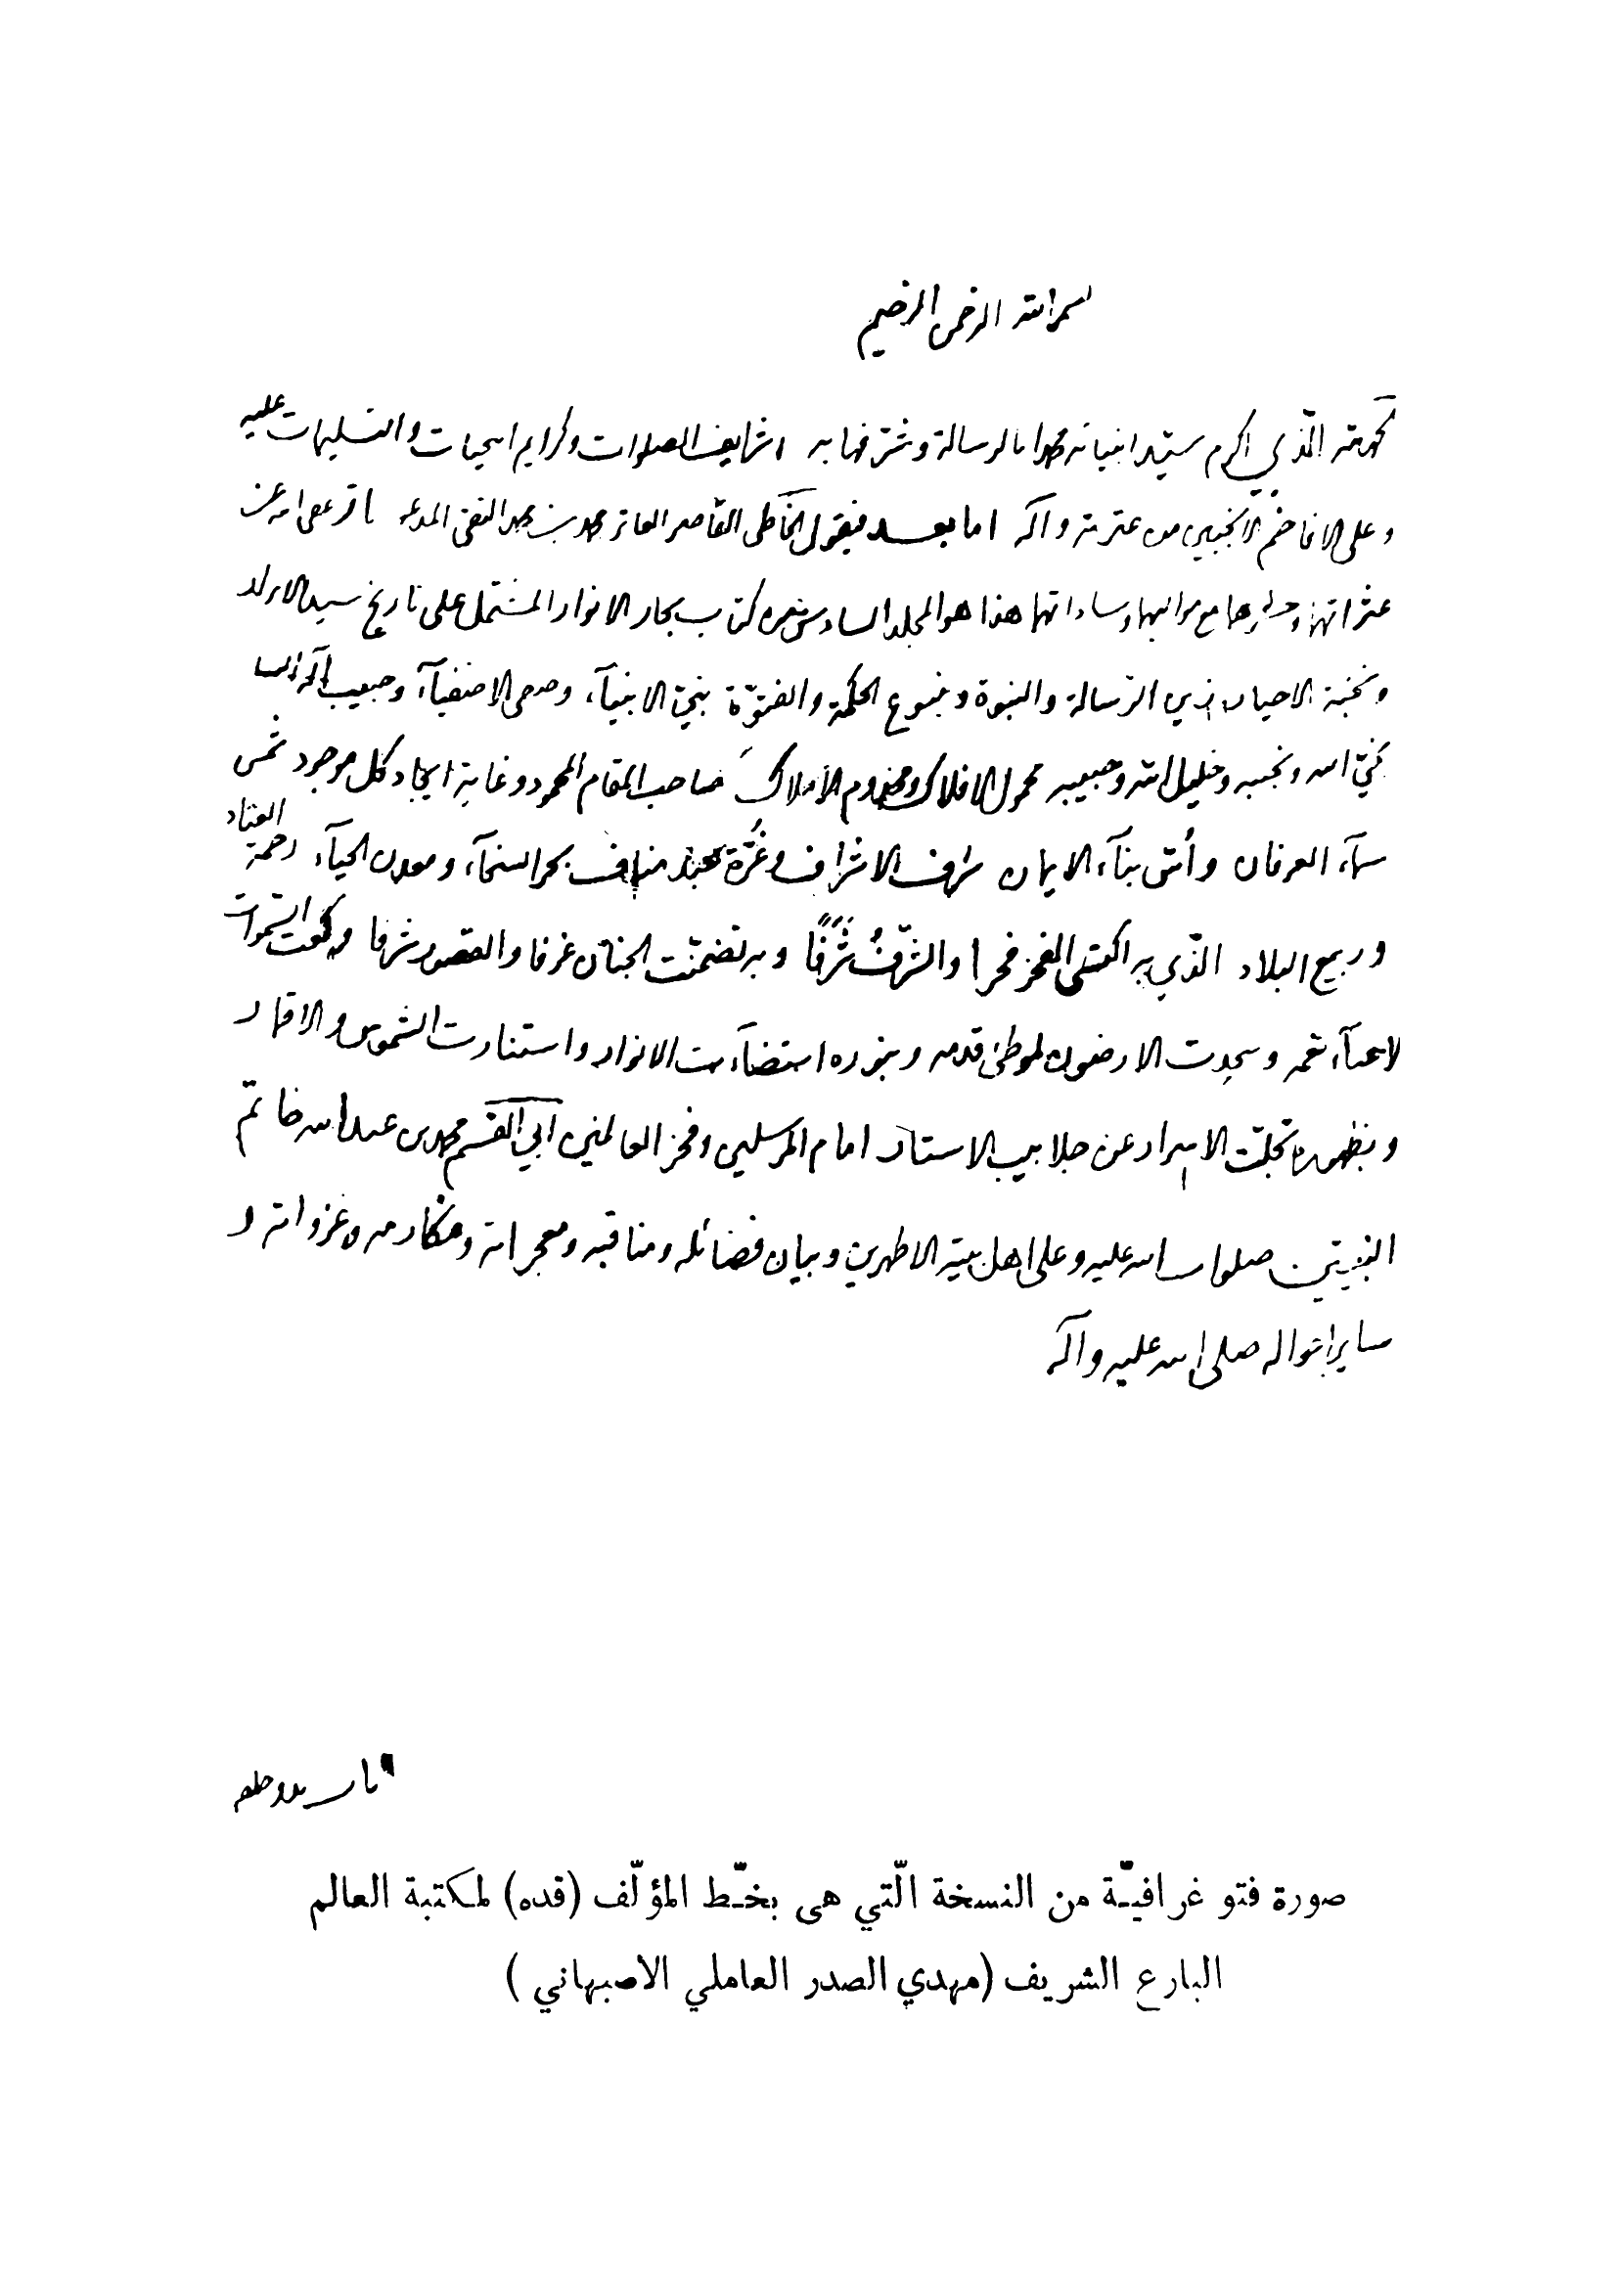 بسم الله الرحمن الرحيم
الحمد لله الّذي اكرم سيّد انبيائه محمدا بالرسالة وشرّفها به وشرايف الصلوات وكرايم التحيات والتسليمات عليه
وعلى الافاخم الانجبين من عترته وآله اما بعد فيقول الخاطى القاصر العاثر محمد بن محمد التقى المدعو بباقر عفى الله عن
عثراتهما وحشرهما مع مواليهما وساداتهما هذا هو المجلد السادس من كتاب بحار الانوار المشتمل على تاريخ سيد الابرار
ونخبة الاخيار زين الرسالة والنبوة وينبوع الحكمة والفتوّة نبيّ الانبيآء وصفى الاصفيآء وحبيب اله السماء
نجيّ الله ونجيبه وخليل الله وحبيبه محمول الافلاك ومخدوم الأملاك صاحب المقام المحمود وغاية ايجاد كل موجود شمس
سمآء العرفان وأسّ بنآء الايمان شرف الاشراف وغُرّة عبد مناف بحر السخآء ومعدن الحيآء رحمة العباد
وربيع البلاد الّذي به اكتسى الفخر فخرا والشّرفُ شَرَفًا وبه تضمّنت الجنان غرفا والقصور شرفا وركعت السّموات
لاعبآء نعمه وسجدت الارضون لموطئ قدمه وبنوره استضآءت الانوار واستنارت الشموس والاقمار
وبظهوره تجلّت الاسرار عن جلابيب الاستار امام المرسلين وفخر العالمين ابي القسم محمد بن عبد الله خاتم
النبيّين صلوات الله عليه وعلى اهل بيته الاطهرين وبيان فضائله ومناقبه ومعجزاته ومكارمه وغزواته و
ساير احواله صلى الله عليه وآله
صورة فتو غرافيّة من النسخة الّتي هى بخّط المؤلّف (قده) لمكتبة العالم
البارع الشريف (مهدي الصدر العاملي الاصبهاني )